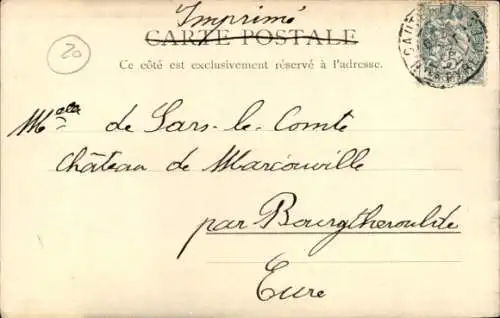 Imprimé
CARTE POSTALE
Ce côté est exclusivement réservé à l'adresse.
20
de Sars-le-Comte
Château de Marcouville
par Bourgtheroulde
Eure